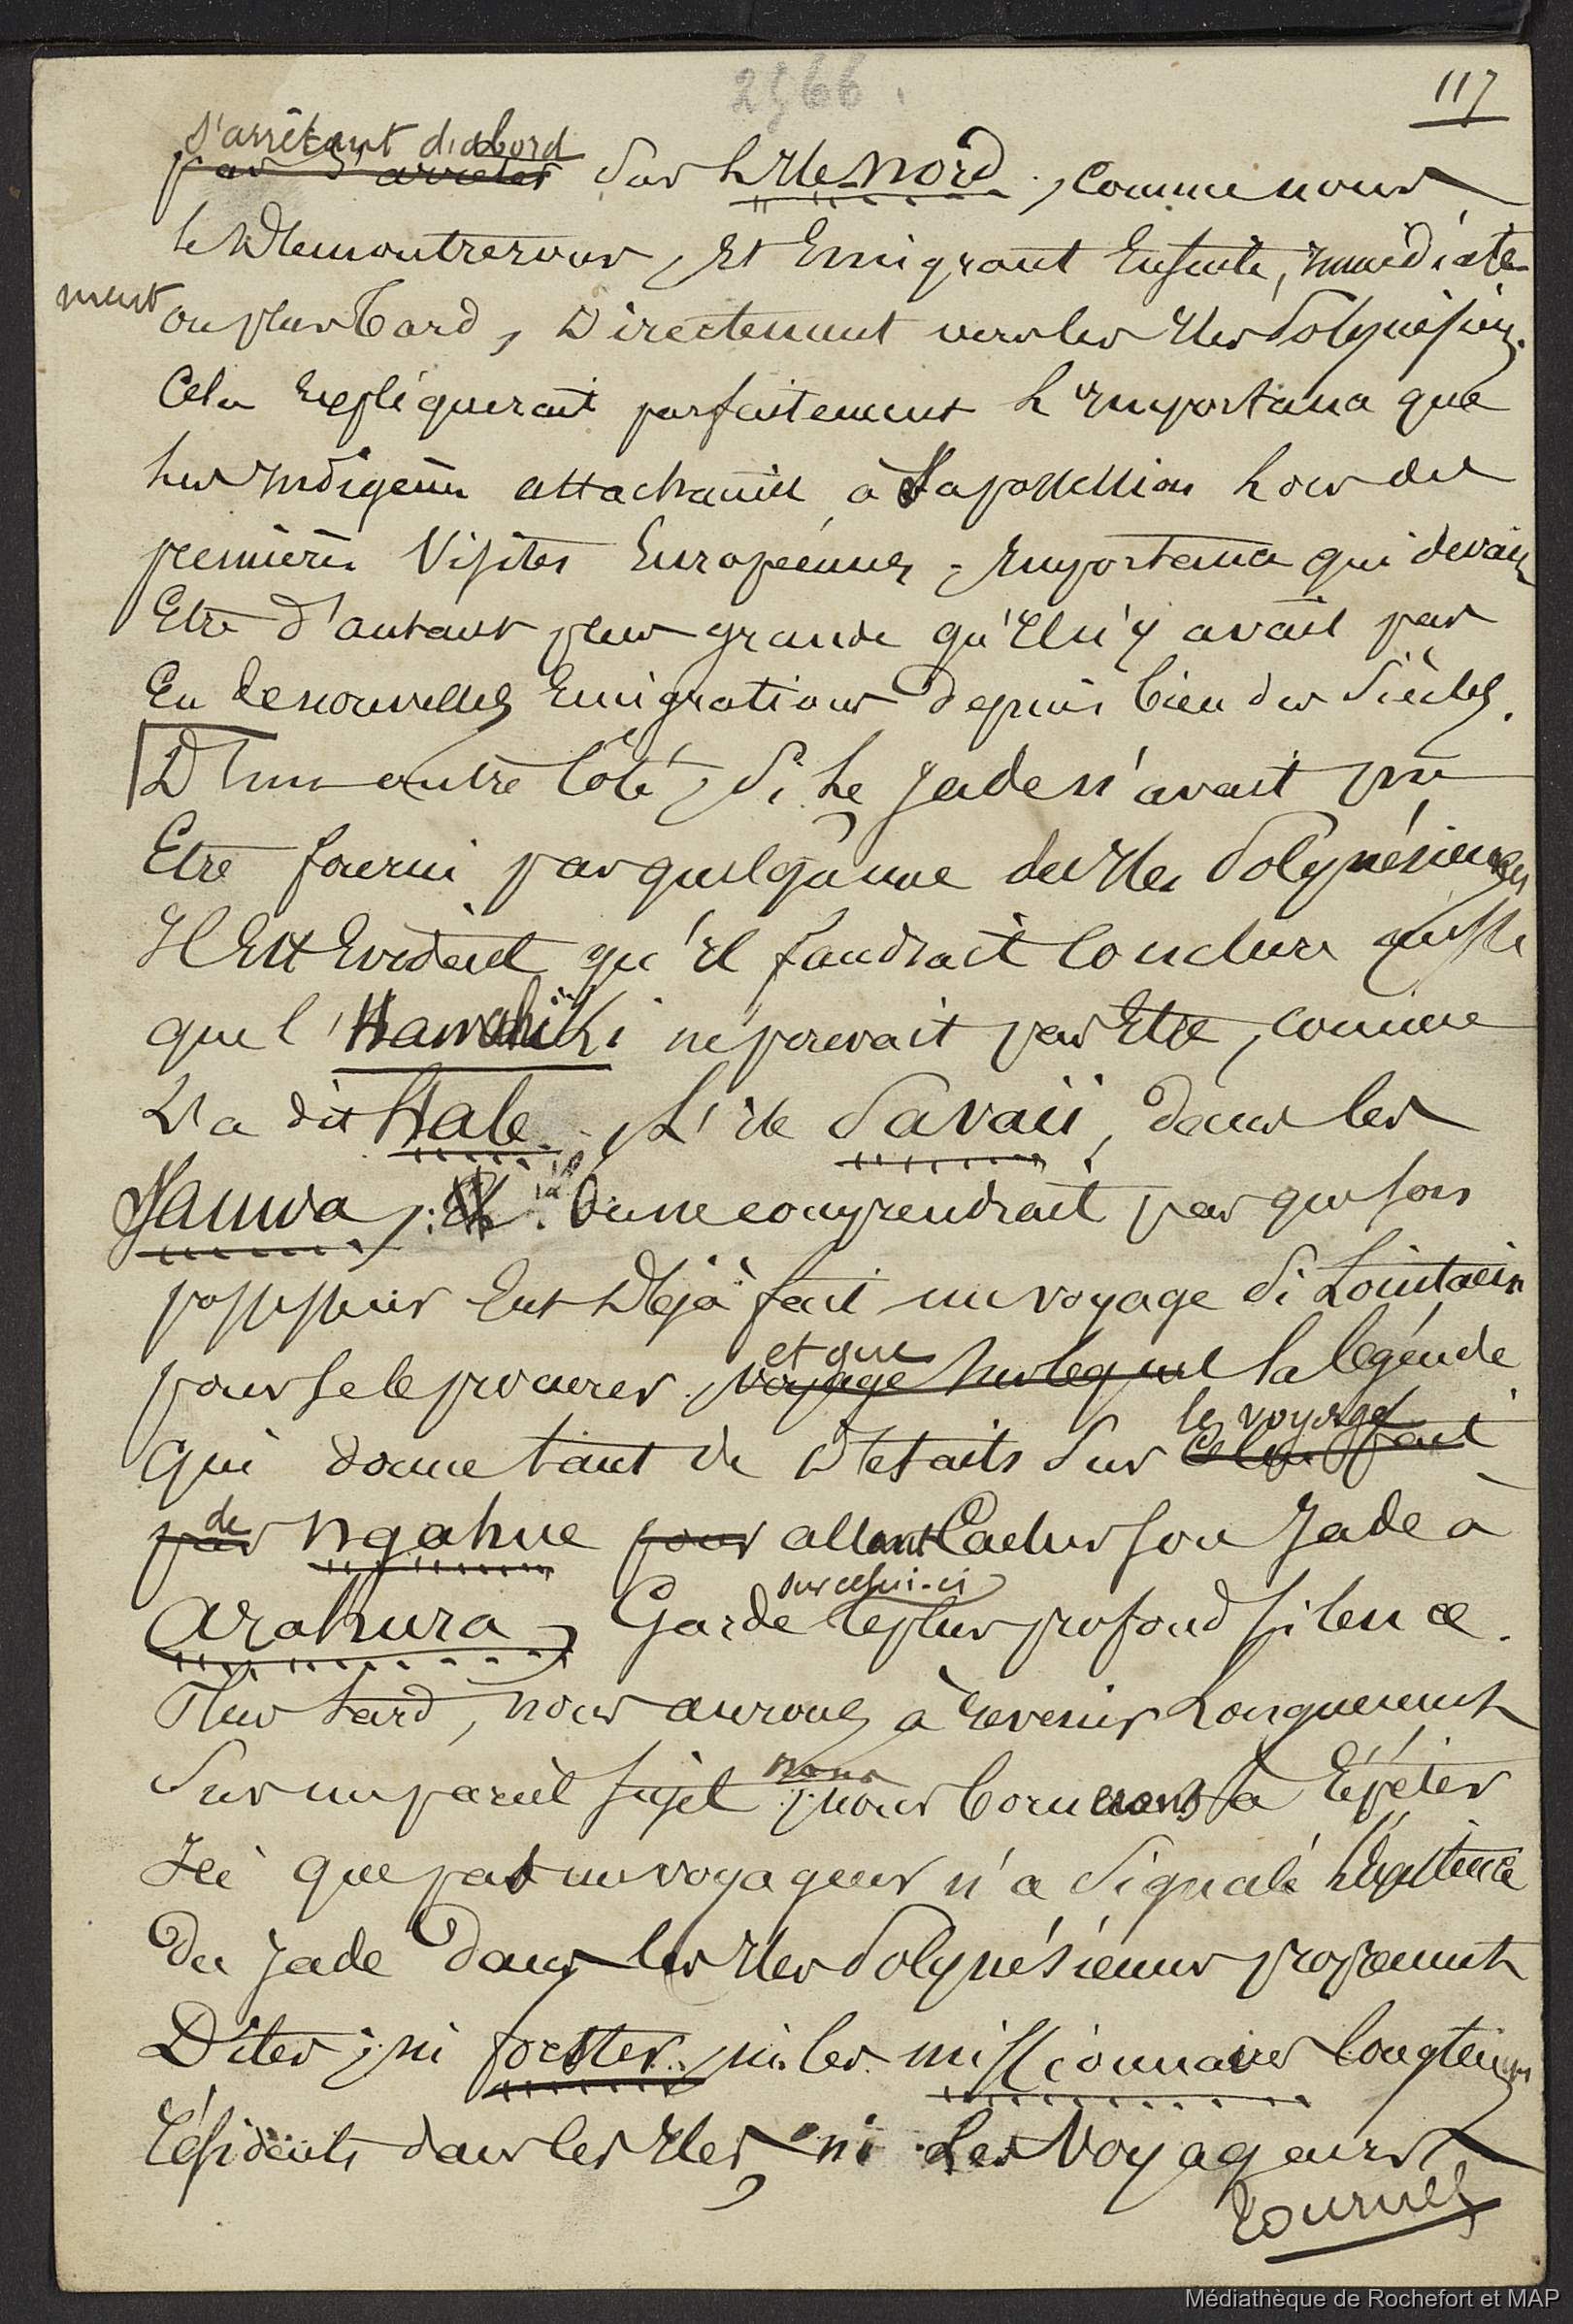 2566.
117
s'arrêtant d'abord
par s'arrêter sur l'Ile nord, comme nous
le Démontrerons, Et Emigrant Ensuite, immédiate-
ment ou plus tard, Directement vers les Iles Polynésien.
Cela Expliquerait parfaitement L'importance que
les indigènes attachaient à sa possession Lors des
premières Visites Européennes, importance qui devait
Etre d'autant plus grande qu'Il n'y avait pas
Eu de nouvelles Emigrations depuis bien des Siècles.
D'un autre Côté, Si Le Jade n'avait pu
Etre fourni par quelqu'une des Iles Polynésiennes
Il Est Evident qu'il faudrait Conclure aussi
que l'Hawahiki ne pouvait pas Etre, comme
L'a dit Hale, L'ile Savaii, dans les
Samoa; on ne comprendrait pas que son
possesseur Eut Déjà fait un voyage Si Lointain
pour se le procurer, et que
voyage sur lequel la légende
qui donne tant de Détails Sur le voyage
celui fait
par de Ngahue pour allant Cacher son Jade à
Arahura, Garde sur celui-ci le plus profond silence.
Plus tard, nous aurons à revenir Longuement
Sur un pareil sujet; nous
nous bornerons à Répéter
Ici que pas un voyageur n'a Signalé L'Existence
Du Jade Dans les Iles Polynésiennes proprement
Dites; ni forster, ni les missionnaires longtemps
Résidents dans les Iles, ni Les Voyageurs
Tournez
Médiathèque de Rochefort et MAP